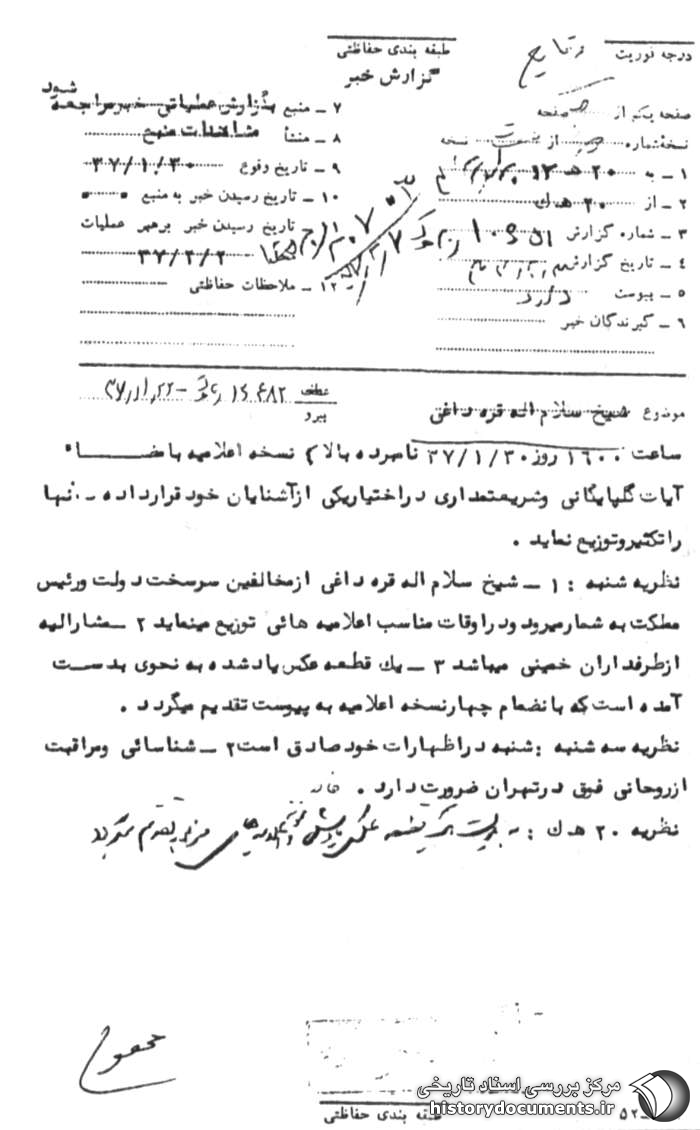 طبقه بندی حفاظتی
گزارش خبر
درجه فوریت
صفحه یکم از صفحه
نسخه شماره از نسخه
۱ ـ به ۲۰ هـ ۱۲
۲ ـ از ۲۰ هـ ك
۳ ـ شماره گزارش
۴ ـ تاریخ گزارش
۵ ـ پیوست دارد
۶ ـ گیرندگان خبر
۷ ـ منبع بگزارش عملیاتی خبر مراجعه شود
۸ ـ منشأ مشاهدات منبع
۹ ـ تاریخ وقوع ۳۷/۱/۳۰
۱۰ ـ تاریخ رسیدن خبر به منبع
تاریخ رسیدن خبر برهبر عملیات
۳۷/۲/۲
۱۲ ـ ملاحظات حفاظتی
موضوع شیخ سلام اله قره داغی
عطف
پیرو
ساعت ۱۶۰۰ روز ۳۷/۱/۳۰ نامبرده بالا نسخه اعلامیه بامضاء
آیات گلپایگانی وشریعتمداری دراختیاریکی ازآشنایان خود قرارداده ـ نها
راتکثیروتوزیع نماید .
نظریه شنبه : ۱ ـ شیخ سلام اله قره داغی ازمخالفین سرسخت دولت ورئیس
مملکت به شمارمیرود ودراوقات مناسب اعلامیه هائی توزیع مینماید ۲ ـ مشارالیه
ازطرفداران خمینی میباشد ۳ ـ یك قطعه عکس یادشده به نحوی بدست
آمده است که بانضمام چهارنسخه اعلامیه به پیوست تقدیم میگردد .
نظریه سه شنبه : شنبه دراظهارات خود صادق است ۲ ـ شناسائی ومراقبت
ازروحانی فوق درتهران ضرورت دارد .
نظریه ۲۰ هـ ك :
طبقه بندی حفاظتی
۵۲
مرکز بررسی اسناد تاریخی
historydocuments.ir